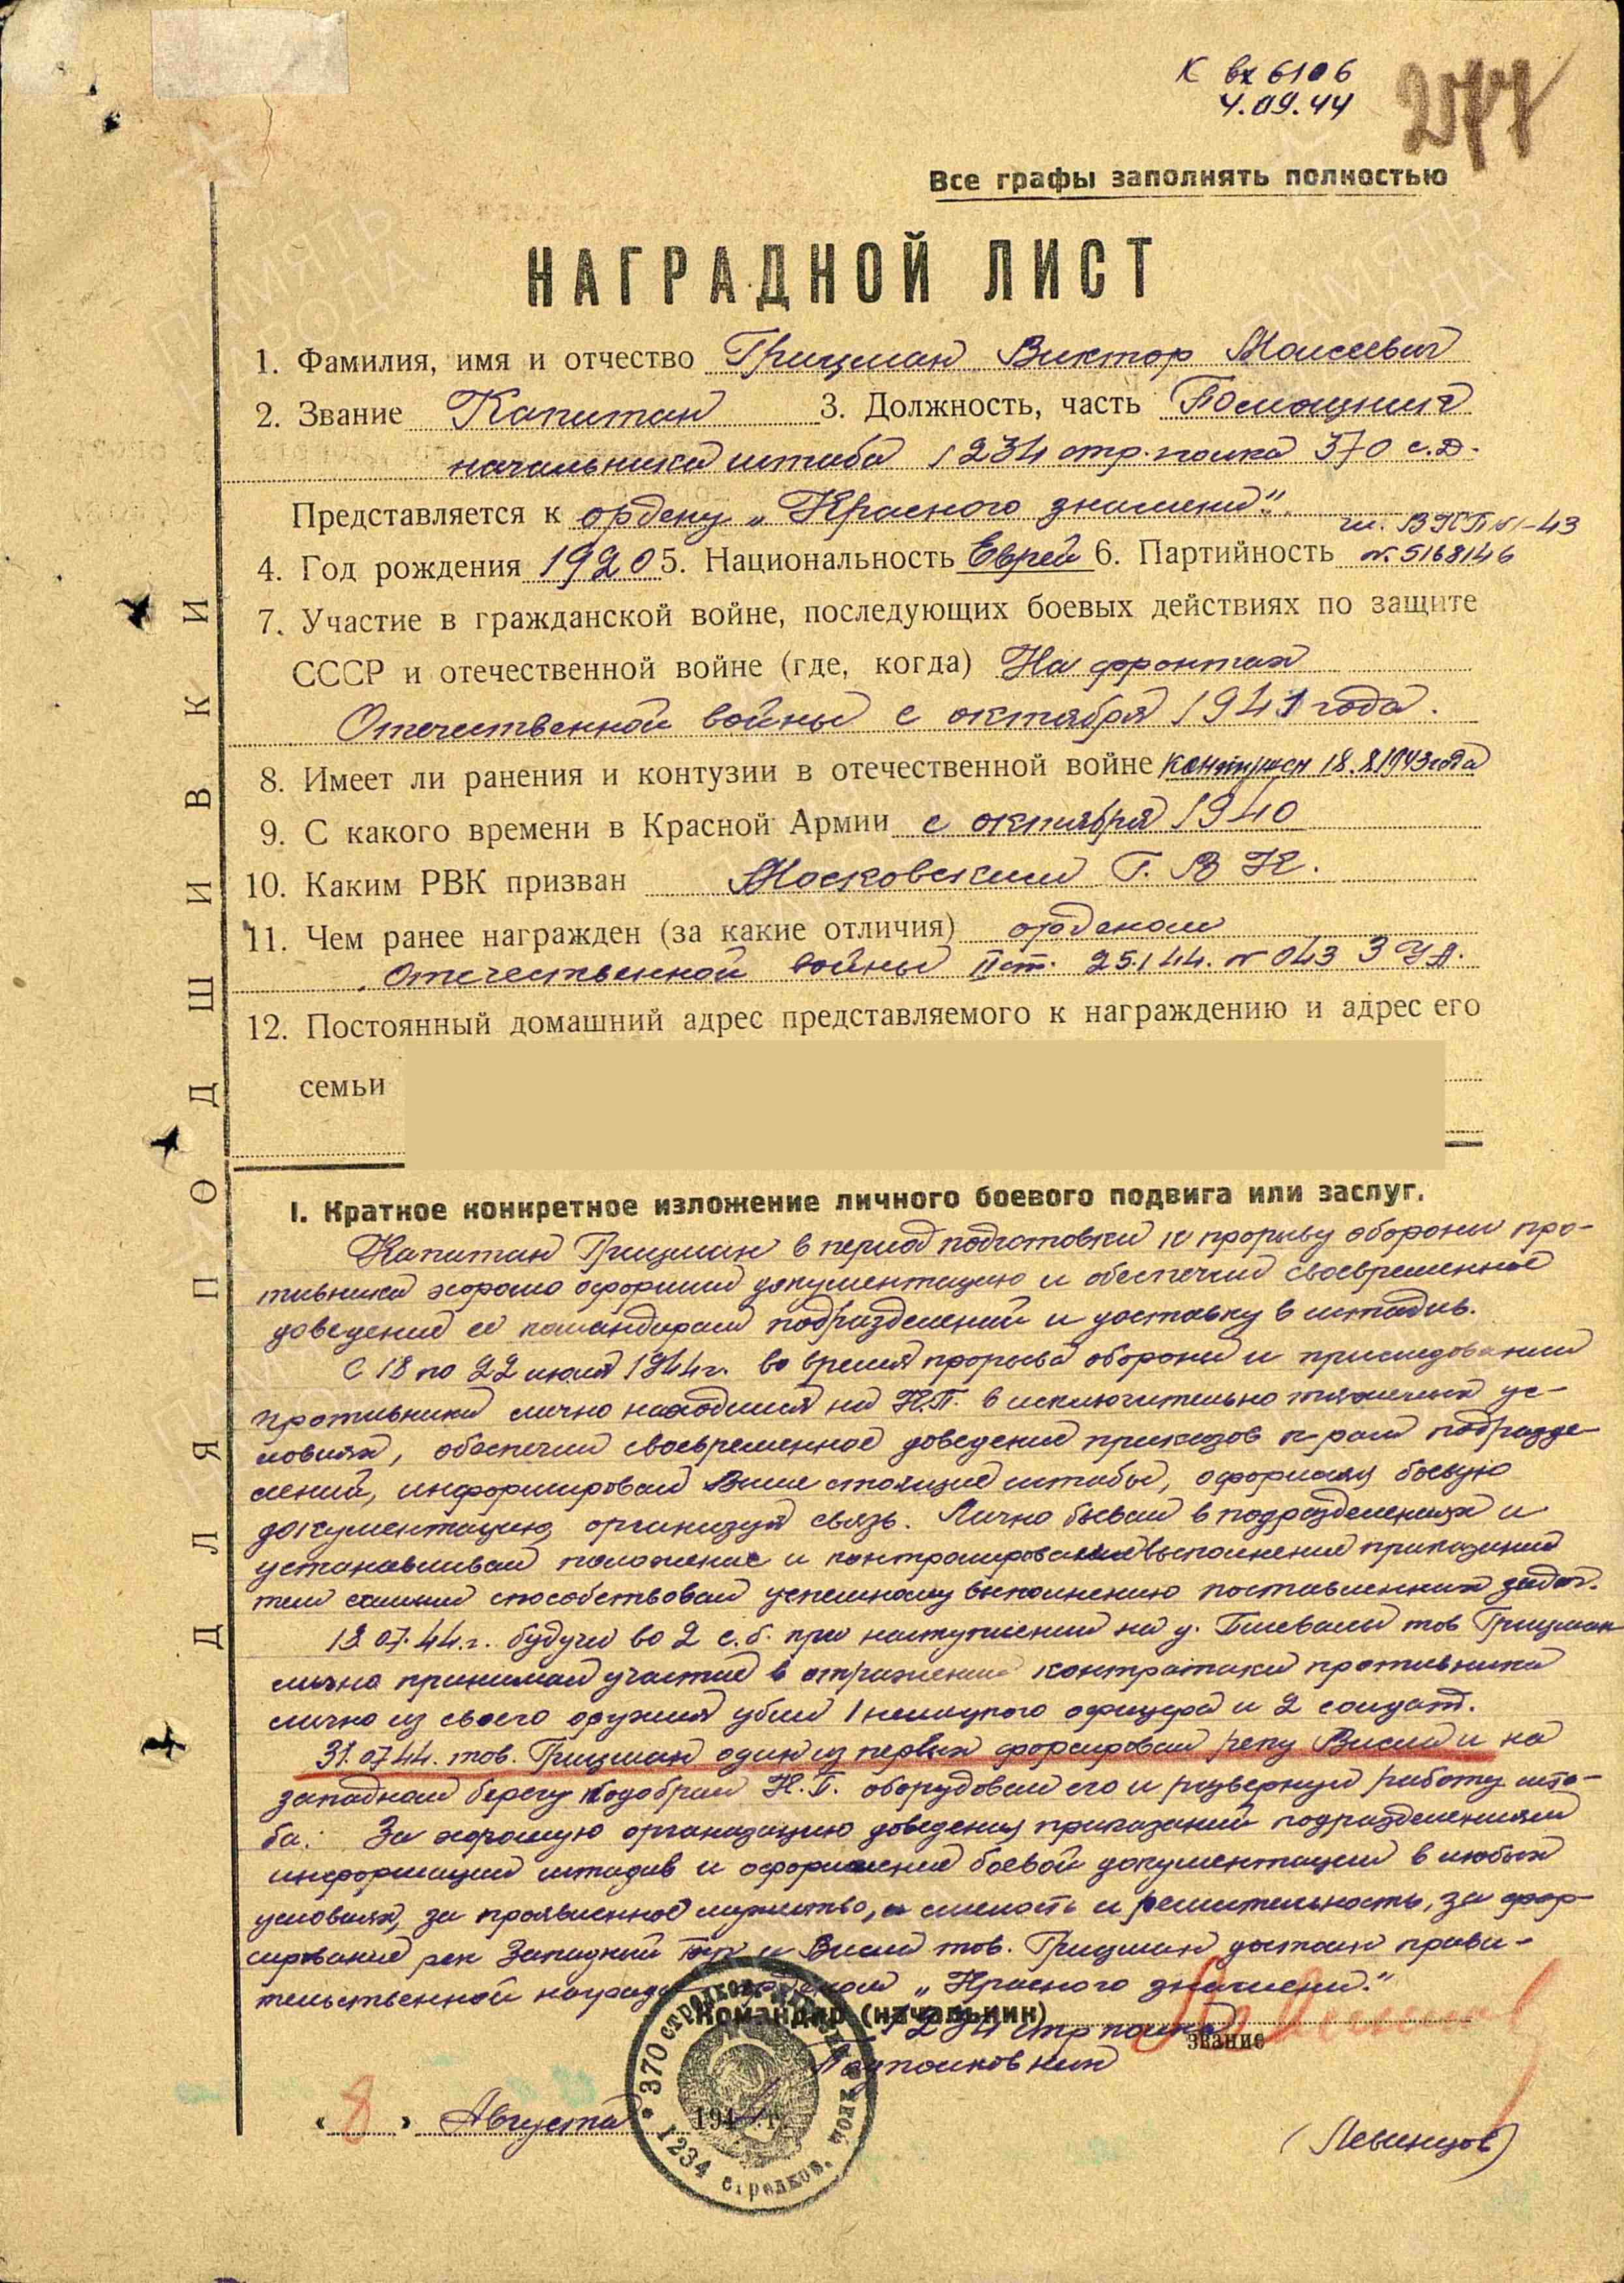 К вх 6106
4.09.44
277
Все графы заполнять полностью
НАГРАДНОЙ ЛИСТ
1. Фамилия, имя и отчество Грицман Виктор Моисеевич
2. Звание Капитан 3. Должность, часть Помощник
начальника штаба 1234 стр. полка 370 с.д.
Представляется к ордену „Красного знамени".
4. Год рождения 1920 5. Национальность Еврей 6. Партийность чл. ВКПб-43 №5168146
7. Участие в гражданской войне, последующих боевых действиях по защите
СССР и отечественной войне (где, когда) На фронтах
Отечественной войны с октября 1941 года.
8. Имеет ли ранения и контузии в отечественной войне контужен 18.8.1943 года
9. С какого времени в Красной Армии с октября 1940
10. Каким РВК призван Московским Г.В.К.
11. Чем ранее награжден (за какие отличия) орденом
Отечественной войны II ст. 25.1.44. № 043 3 УА.
12. Постоянный домашний адрес представляемого к награждению и адрес его
семьи
I. Краткое конкретное изложение личного боевого подвига или заслуг.
Капитан Грицман в период подготовки к прорыву обороны про-
тивника хорошо оформил документацию и обеспечил своевременное
доведение ее командирам подразделений и доставку в штадив.
С 18 по 22 июля 1944г. во время прорыва обороны и приследовании
противника лично находился на К.П. в исключительно тяжелых ус-
ловиях, обеспечил своевременное доведение приказов к-рам подразде-
лений, информировал Выше стоящие штабы, оформлял боевую
документацию, организуя связь. Лично бывал в подразделениях и
устанавливал положение и контролировал выполнение приказаний
тем самым способствовал успешному выполнению поставленных задач.
18.07.44.г. будучи во 2 с.б. при наступлении на у. тов Грицман
лично принимал участие в отражении контратаки противника
лично из своего оружия убил 1 немецкого офицера и 2 солдат.
31.07.44. тов. Грицман один из первых форсировал реку Висла и на
западном берегу подобрал К.П. оборудовал его и развернул работу шта-
ба. За хорошую организацию доведения приказаний подразделениям
информации штадив и оформление боевой документации в любых
условиях, за проявленное мужество, смелость и решительность, за фор-
сирование рек Западный Буг и Висла тов. Грицман достоин прави-
тельственной награды орденом „Красного знамени."
Командир (начальник) 1234 стр полка
звание
Подполковник
« 8 » Августа 1944 г.
(Левинцов)
370 СТРЕЛКОВ
1234 стрелков.
ДЛЯ ПОДШИВКИ
ПАМЯТЬ
НАРОДА